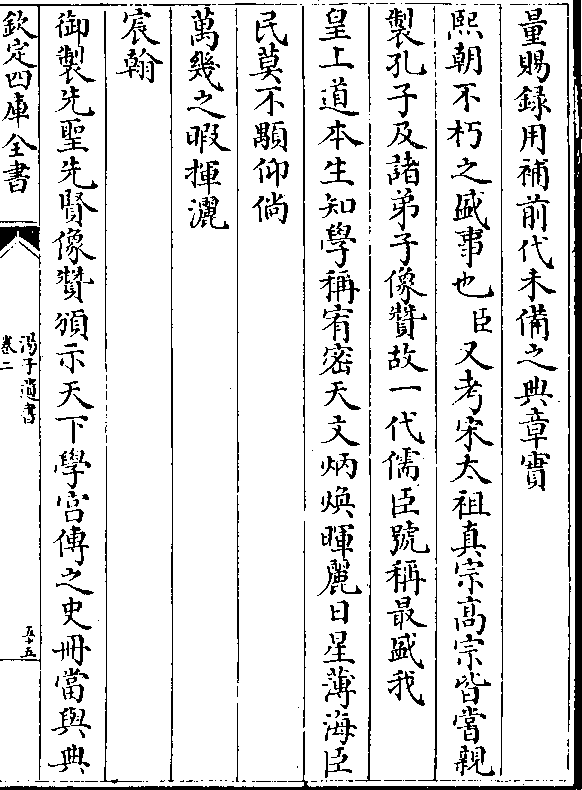 量賜録用補前代未備之典章實
熙朝不朽之盛事也臣又考宋太祖真宗高宗皆嘗親
製孔子及諸弟子像贊故一代儒臣號稱最盛我
皇上道本生知學稱宥密天文炳煥暉麗日星薄海臣
民莫不顒仰倘
萬幾之暇揮灑
宸翰
御製先聖先賢像贊頒示天下學宫傳之史冊當與典
欽定四庫全書
湯子遺書
卷二
五十五